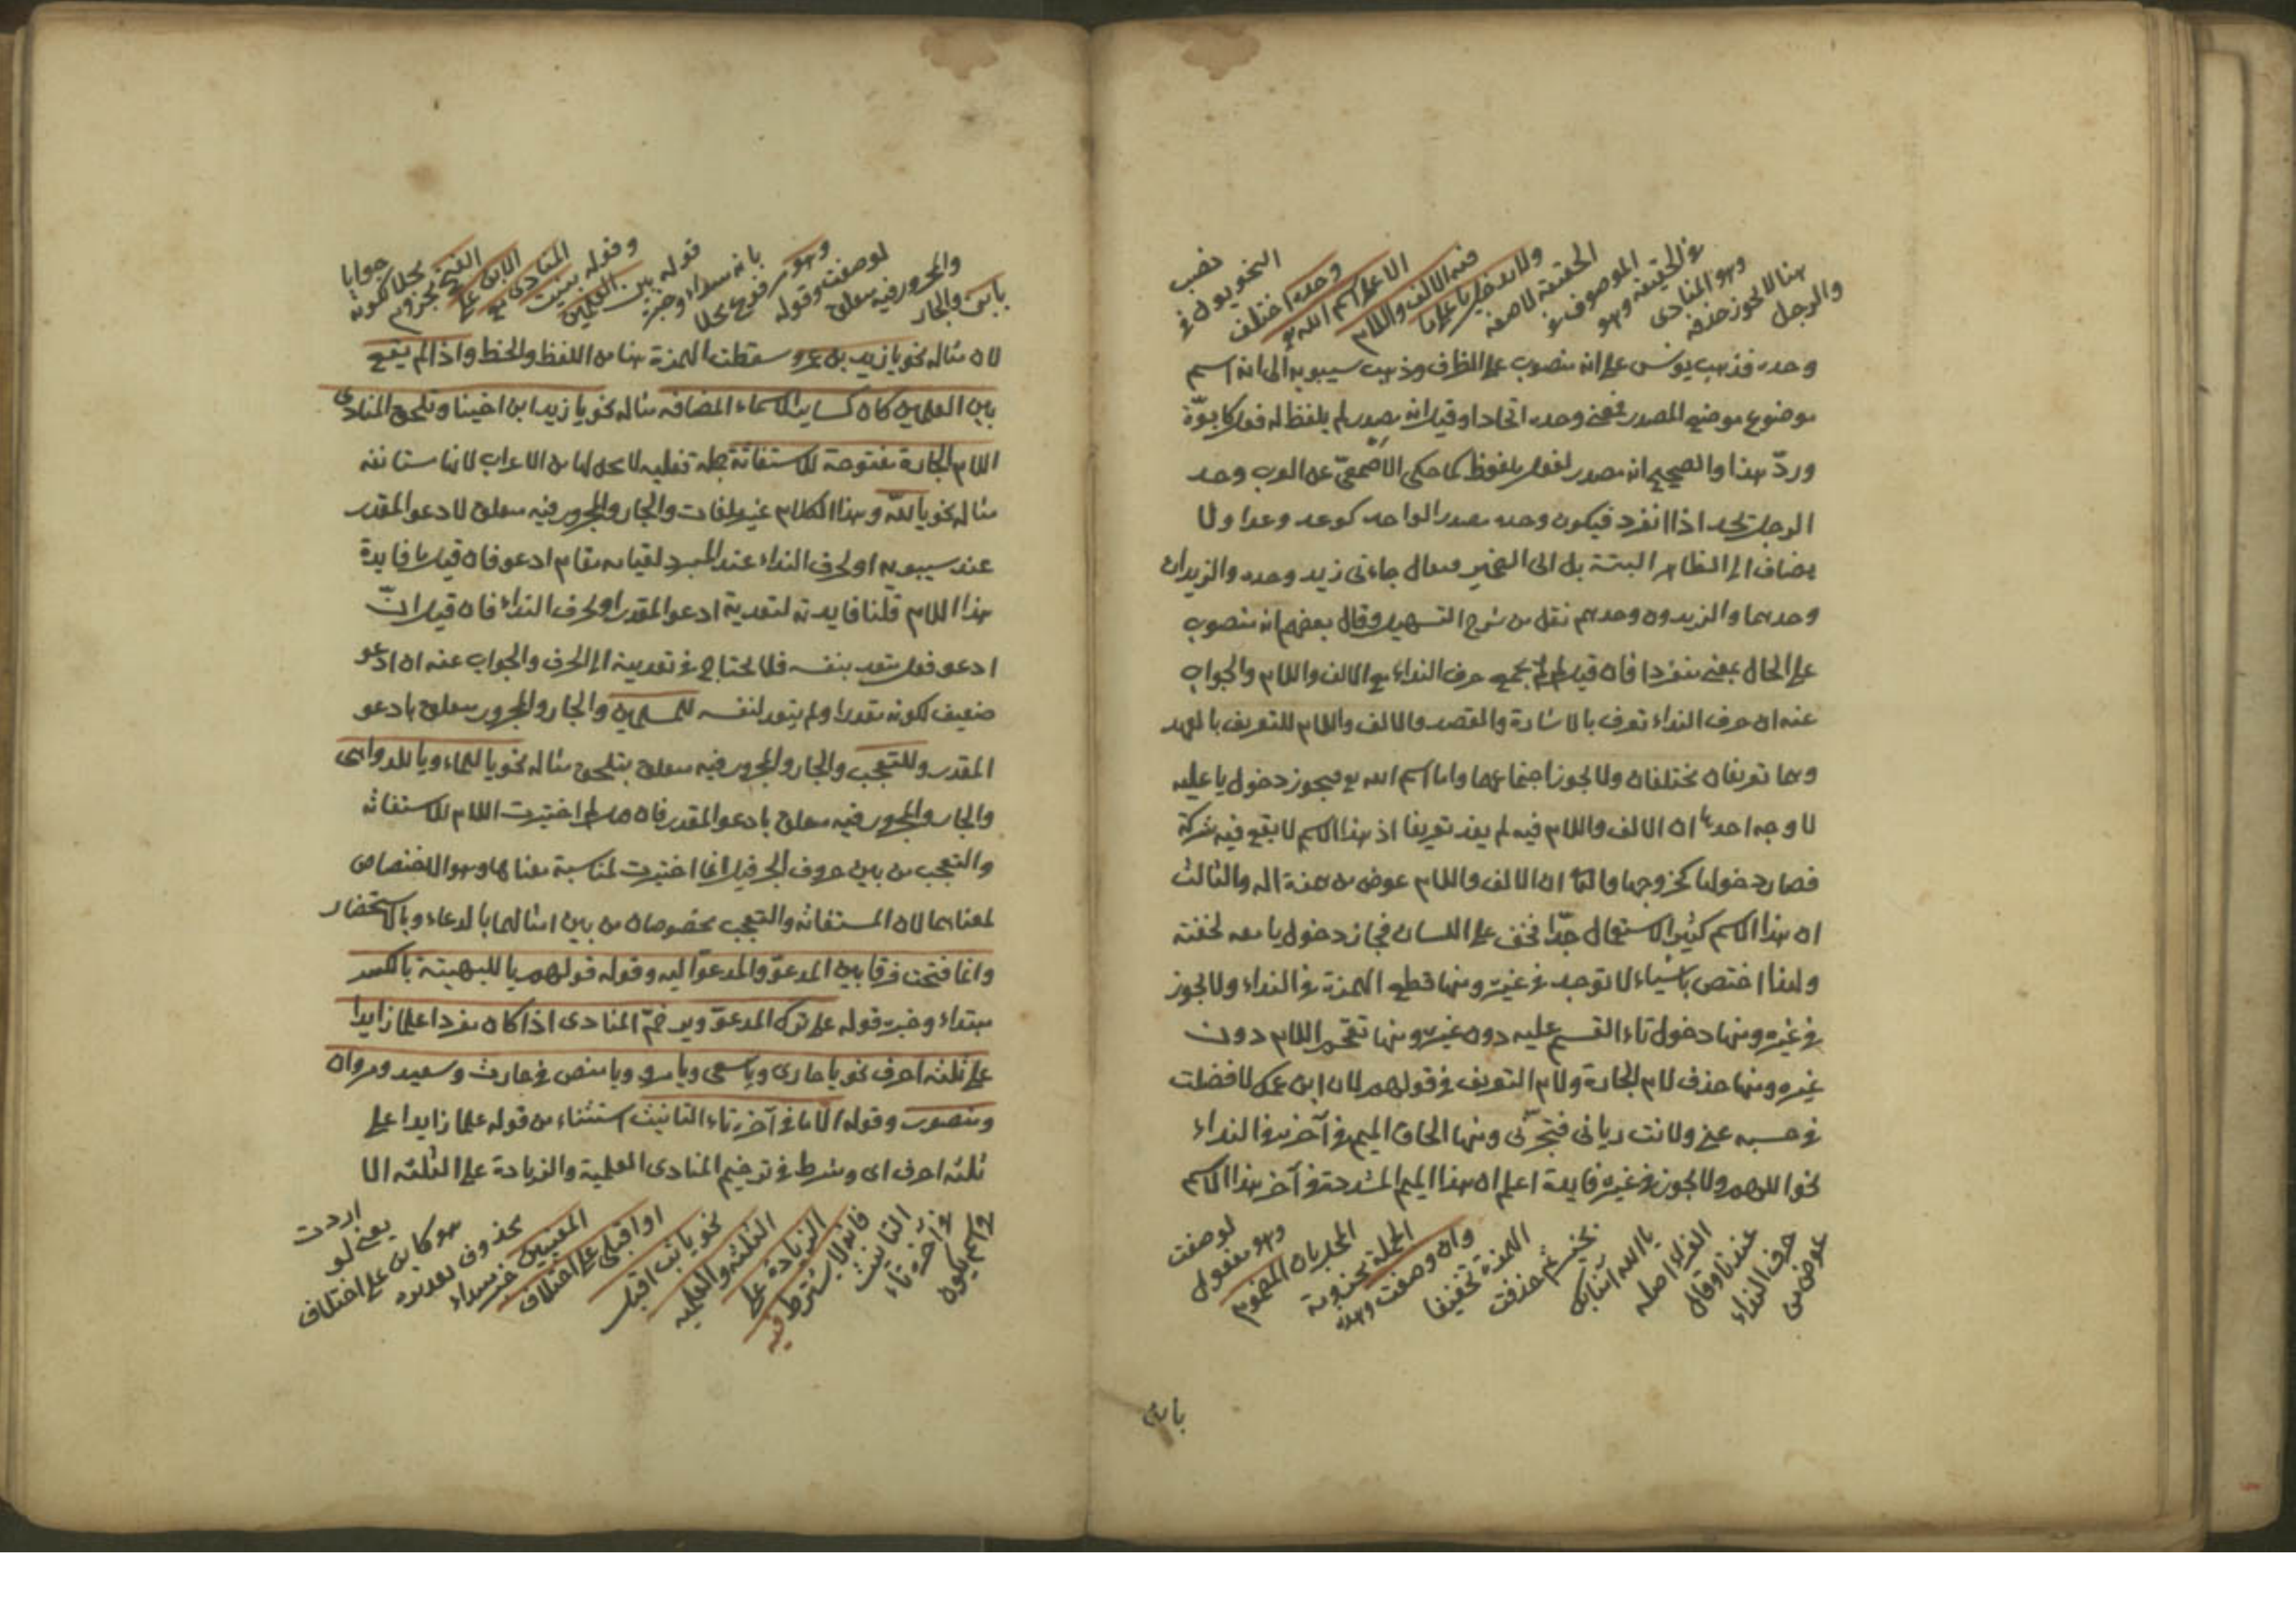 والرجل
هنا لا يجوز حذفه
وهو المنادى
في الحقيقة وهو
الموصوف في
الحقيقة لا صفة
ولا يدخل يا على ما
فيه الالف واللام
الا على اسم الله تع
وحده اختلف
النحويون في
نصب
وحده فذهب يونس على انه منصوب على الظرف وذهب سيبويه الى انه اسم
موضوع موضع المصدر فمعنى وحده اتحادا وقيل انه مصدر لم يلفظ له فعل كابوّة
وردّ هذا والصحيح انه مصدر لفعل ملفوظ كما حكى الاصمعيّ عن العرب وحد
الرجل يحد اذا انفرد فيكون وحده مصدر الواحد كوعد وعدا ولا
يضاف الى الظاهر البتة بل الى الضمير فيقال جاءنى زيد وحده والزيدان
وحدهما والزيدون وحدهم نقل من شرح التسهيل وقال بعضهم انه منصوب
على الحال بمعنى منفردا فان قيل لم لم يجمع حرف النداء مع الالف واللام والجواب
عنه ان حرف النداء تعرف بالاشارة والقصد والالف واللام للتعريف بالعهد
وهما تعريفان مختلفان ولا يجوز اجتماعهما واما اسم الله تع فيجوز دخول يا عليه
لاوجه احدها ان الالف واللام فيه لم يفد تعريفا اذ هذا الاسم لا يقع فيه شركة
فصار دخولها كخروجها والثاني ان الالف واللام عوض من همزة اله والثالث
ان هذا الاسم كثير الاستعمال جدّا فخف على اللسان فجاز دخول يا معه لخفته
ولهذا اختص باشياء لا توجد في غيره ومنها قطع الهمزة في النداء ولا يجوز
في غيره ومنها دخول تاء القسم عليه دون غيره ومنها تفخيم اللام دون
غيره ومنها حذف لام الجارة ولام التعريف في قولهم لاه ابن عمك لا افضلت
في حسب عني ولا انت ديانى فتخزونى ومنها الحاق الميم في آخره في النداء
نحو اللهم ولا يجوز في غيره فايدة اعلم ان هذا الميم المشددة في آخر هذا الاسم
عوض من
حرف النداء
عندنا وقال
الفراء اصله
يا الله آمنا بك
بخير ثم حذفت
الهمزة تخفيفا
وان وصفت وهذه
الجملة مجزومة
المحل بان المضموم
وهو مفعول
لوصفت
يا بن
يا بن والجار
والمجرور فيه متعلق
لوصفت وقوله
وهو مرفوع محلا
بانه مبتداء وخبره
قوله بين العلمين
وقوله بنيت
المنادى مع
الابن على
الفتح مجزوم
محلا لكونه
جوابا
لان مثاله نحو يا زيد بن عمرو سقطت الهمزة هنا من اللفظ والخط واذا لم يقع
بين العلمين كان كساير الاسماء المضافه مثاله نحو يا زيد ابن اخينا وتلحق المنادى
اللام الجارة مفتوحة للاستغاثة جملة فعلية لا محل لها من الاعراب لانها مستانفه
مثاله نحو يا لله وهذا الكلام غير ملفات والجار والمجرور فيه متعلق لادعو المقدر
عند سيبويه او لحرف النداء عند المبرد لقيامه مقام ادعو فان قيل ما فايدة
هذا اللام قلنا فايدته لتعدية ادعو المقدر او لحرف النداء فان قيل انّ
ادعو فعل متعد بنفسه فلا يحتاج في تعديته الى الحرف والجواب عنه ان ادعو
ضعيف لكونه مقدرا ولم يتعد لنفسه للمسلمين والجار والمجرور متعلق بادعو
المقدر وللتعجب والجار والمجرور فيه متعلق بتلحق مثاله نحو يا للماء ويا للدواهى
والجار والمجرور فيه متعلق بادعو المقدر فان قيل لم اختيرت اللام للاستغاثه
والتعجب من بين حروف الجر قيل انما اختيرت لمناسبة معناها وهو الاختصاص
لمعناهما لان المستغاثه والتعجب مخصوصان من بين امثالهما بالدعاء وبالاستحضار
وانما فتحت فرقا بين المدعوّ والمدعوّ اليه وقوله قولهم يا للبهيتة بالكسر
مبتداء وخبره قوله على ترك المدعوّ ويرخّم المنادى اذا كان مفردا علما زايدا
على ثلثه احرف نحو يا حار ويا سعى ويا مرو ويا منص في حارث وسعيد ومروان
ومنصور وقوله الا ما في آخره تاء التانيث استثناء من قوله علما زايدا على
ثلثه احرف اى وشرط في ترخيم المنادى العلمية والزيادة على الثلثه الا
ولم يكون
في آخره تاء
التانيث
فانه لا يشترط فيه
الزيادة على
الثلثه والعلميه
نحو يا ثب اقبل
او اقبلى على اختلاف
المعنيين خبر مبتداء
محذوف تقديره
هو كاين على اختلاف
يعنى لو
اردت